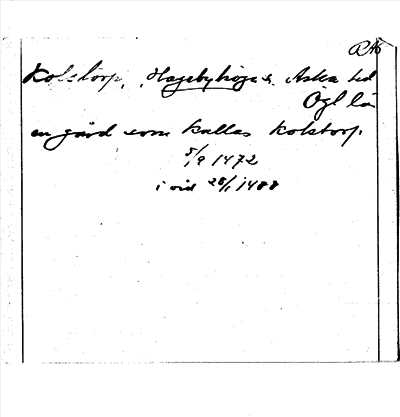 RAÖ
Kolstorp, Hagebyhöga s. Aska hd
Ögl lä
en gård som kallas Kolstorp.
5/9 1472
i vid 28/1 1488